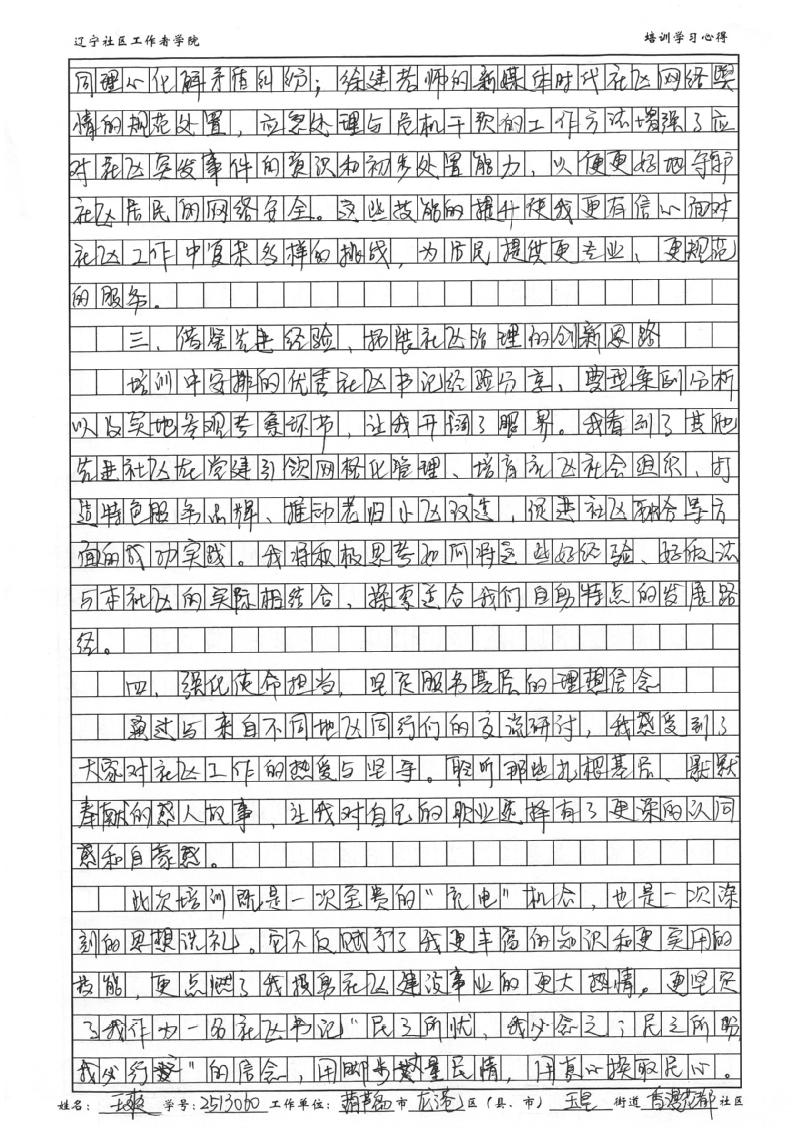 辽宁社区工作者学院 培训学习心得
同理心化解矛盾纠纷；徐建老师的新媒体时代社区网络舆
情的规范处置，应急处理与危机干预的工作方法增强了应
对社区突发事件的预识和初步处置能力，以便更好地守护
社区居民的网络安全。这些技能的提升使我更有信心面对
社区工作中复杂多样的挑战，为居民提供更专业、更规范
的服务。
三、借鉴先进经验，拓展社区治理的创新思路
培训中安排的优秀社区书记经验分享、典型案例分析
以及实地参观考察环节，让我开阔了眼界。我看到了其他
先进社区在党建引领网格化管理、培育社区社会组织、打
造特色服务品牌、推动老旧小区改造，促进社区融合等方
面的成功实践。我将积极思考如何将这些好经验、好做法
与本社区的实际相结合，探索适合我们自身特点的发展路
径。
四、强化使命担当，坚定服务基层的理想信念
通过与来自不同地区同行们的交流研讨，我感受到了
大家对社区工作的热爱与坚守。聆听那些扎根基层、默默
奉献的感人故事，让我对自己的职业选择有了更深的认同
感和自豪感。
此次培训既是一次宝贵的“充电”机会，也是一次深
刻的思想洗礼。它不仅赋予了我更丰富的知识和更实用的
技能，更点燃了我投身社区建设事业的更大热情。更坚定
了我作为一名社区书记“民之所忧，我必念之；民之所盼
我必行之”的信念，用脚步丈量民情，用真心换取民心。
姓名：王爽 学号：2513060 工作单位：葫芦岛市 龙港区（县、市） 玉皇 街道 香港花都社区